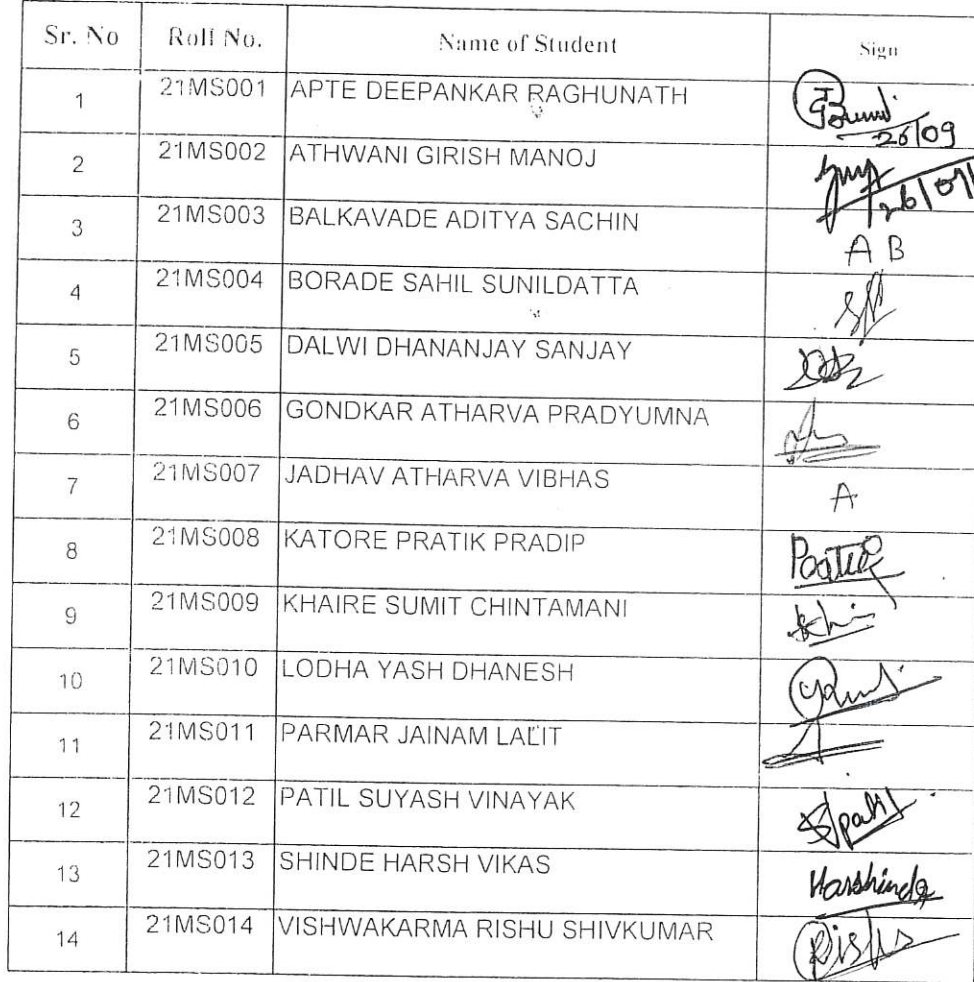 Sr. No Roll No. Name of Student Sign
1 21MS001 APTE DEEPANKAR RAGHUNATH
26/09
2 21MS002 ATHWANI GIRISH MANOJ
26/09/
3 21MS003 BALKAVADE ADITYA SACHIN A B
4 21MS004 BORADE SAHIL SUNILDATTA
5 21MS005 DALWI DHANANJAY SANJAY
6 21MS006 GONDKAR ATHARVA PRADYUMNA
7 21MS007 JADHAV ATHARVA VIBHAS A
8 21MS008 KATORE PRATIK PRADIP
9 21MS009 KHAIRE SUMIT CHINTAMANI
10 21MS010 LODHA YASH DHANESH
11 21MS011 PARMAR JAINAM LALIT
12 21MS012 PATIL SUYASH VINAYAK Spatil
13 21MS013 SHINDE HARSH VIKAS Harshinde
14 21MS014 VISHWAKARMA RISHU SHIVKUMAR Rishu